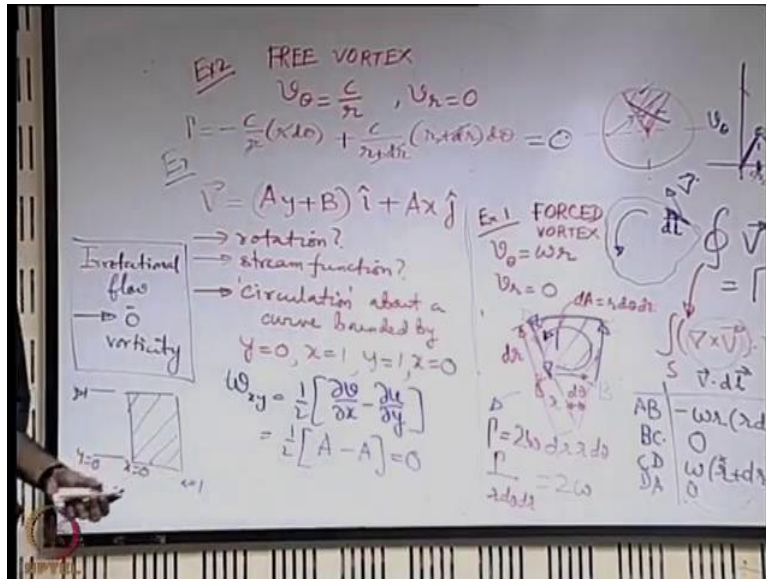 Ex2 FREE VORTEX
v_θ = c/r , v_r = 0
Γ = -c/r (r dθ) + c/(r+dr) (r+dr) dθ = 0
Ex
V⃗ = (Ay+B) î + Ax ĵ
→ rotation?
→ stream function?
→ 'circulation' about a
curve bounded by
y=0, x=1, y=1, x=0
ω_xy = 1/2 [∂v/∂x - ∂u/∂y]
= 1/2 [A - A] = 0
Irrotational
flow
→ 0
vorticity
y=1
y=0
x=0
x=1
Ex 1 FORCED
VORTEX
v_θ = ωr
v_r = 0
dA = r dθ dr
dr
r
dθ
B
D
Γ = 2ω dr r dθ
Γ/(r dθ dr) = 2ω
v_θ
V⃗
dl
∮ V⃗
= Γ
∫_S (∇×V⃗) ·
V⃗·dl⃗
AB -ωr(rd
BC 0
CD ω(r+dr
DA 0
NPTEL